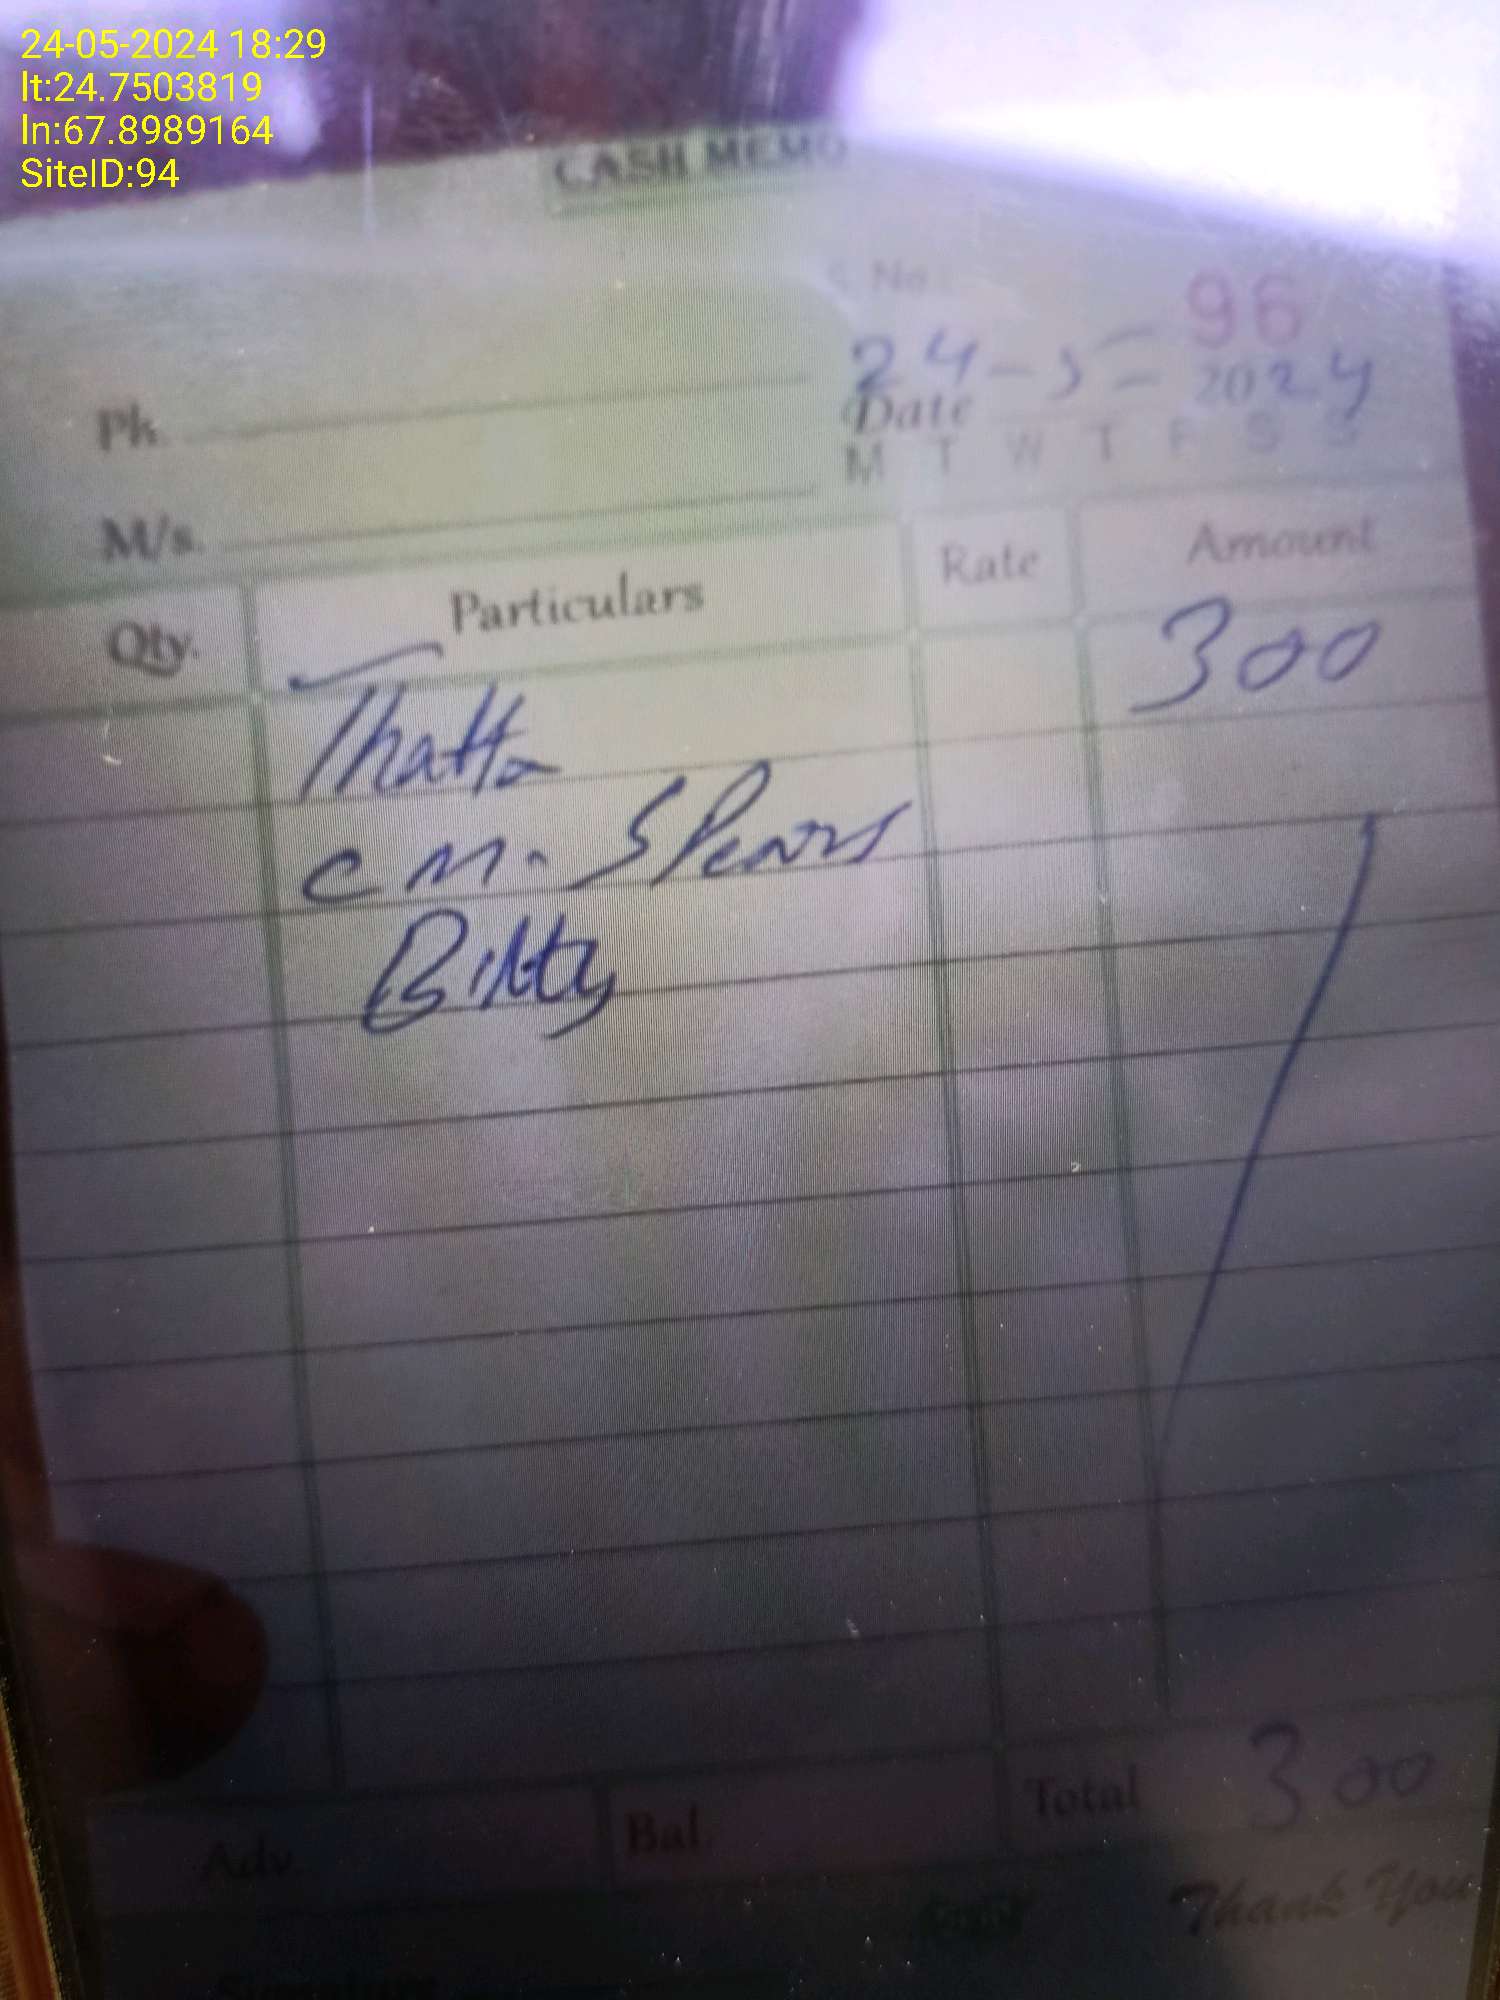 24-05-2024 18:29
lt:24.7503819
ln:67.8989164
SiteID:94
CASH MEMO
No. 96
24-5-2024
Date
M T W T F S S
Ph.
M/s.
Qty. Particulars Rate Amount
Thatta 300
C M. SPears
Bilty
Total 300
Adv. Bal.
Thank You
Signature